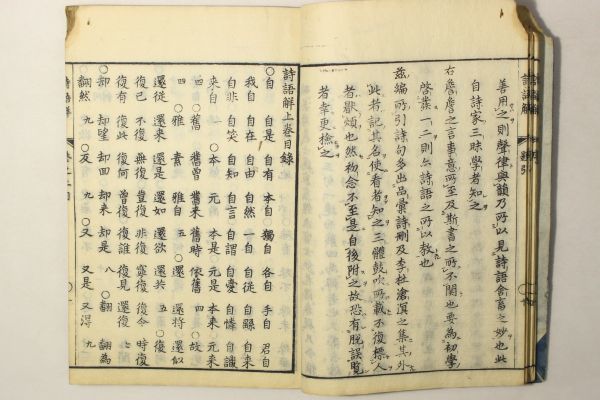 善用之則聲律與韻乃所以見詩語含畜之妙也此
自詩家三昧學者知之
右詹詹之言事意所至及斯書之所不関也要為初學
啓蒙一二則亦詩語之所以教也
茲編所引詩句多出品彙詩刪及李杜滄溟之集其外
此者記其名使看者知之三體鼓吹所載不復標人
者獣煩也然物念不至是自後附之故恐有脱謬覧
者幸更撿之
詩語解上巻目録
○自 自是 自有 本自 獨自 各自 手自 君自
我自 自在 自由 自然 一自 自從 自縣 自来
自非 自笑 自知 自言 自謂 自愛 自憐 自識
来自 一 ○本 元 本是 元是 本来 元来
四 ○舊 舊曾 舊来 舊時 依舊 四 ○故
四 ○雅 素 雅自 五 ○還 還将 還似
還従 還来 還是 還如 還欲 還共 五 ○復
復已 不復 無復 豈復 非復 寧復 復今 時復
復有 復此 復何 曾復 復誰 復見 還復 七
○却 却望 却回 却来 却是 八 ○翻 翻為
翻然 九 ○反 九 ○又 又是 又得 九